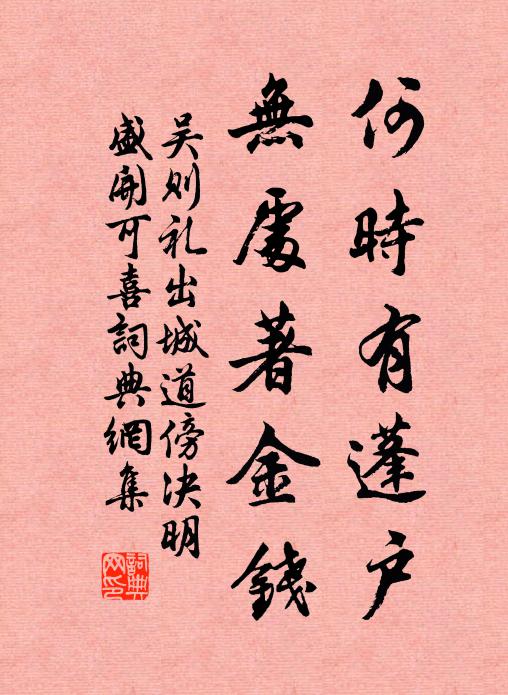 何時有蓬戶
無處著金錢
吴则礼出城道傍决明
盛開可喜詞典網集
詞典
网印